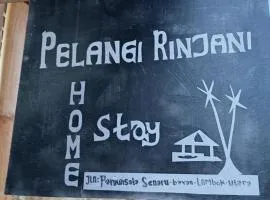 PELANGI RINJANI
HOME
Stay
JLN: Pariwisata Senaru-bayan-Lombok-utara